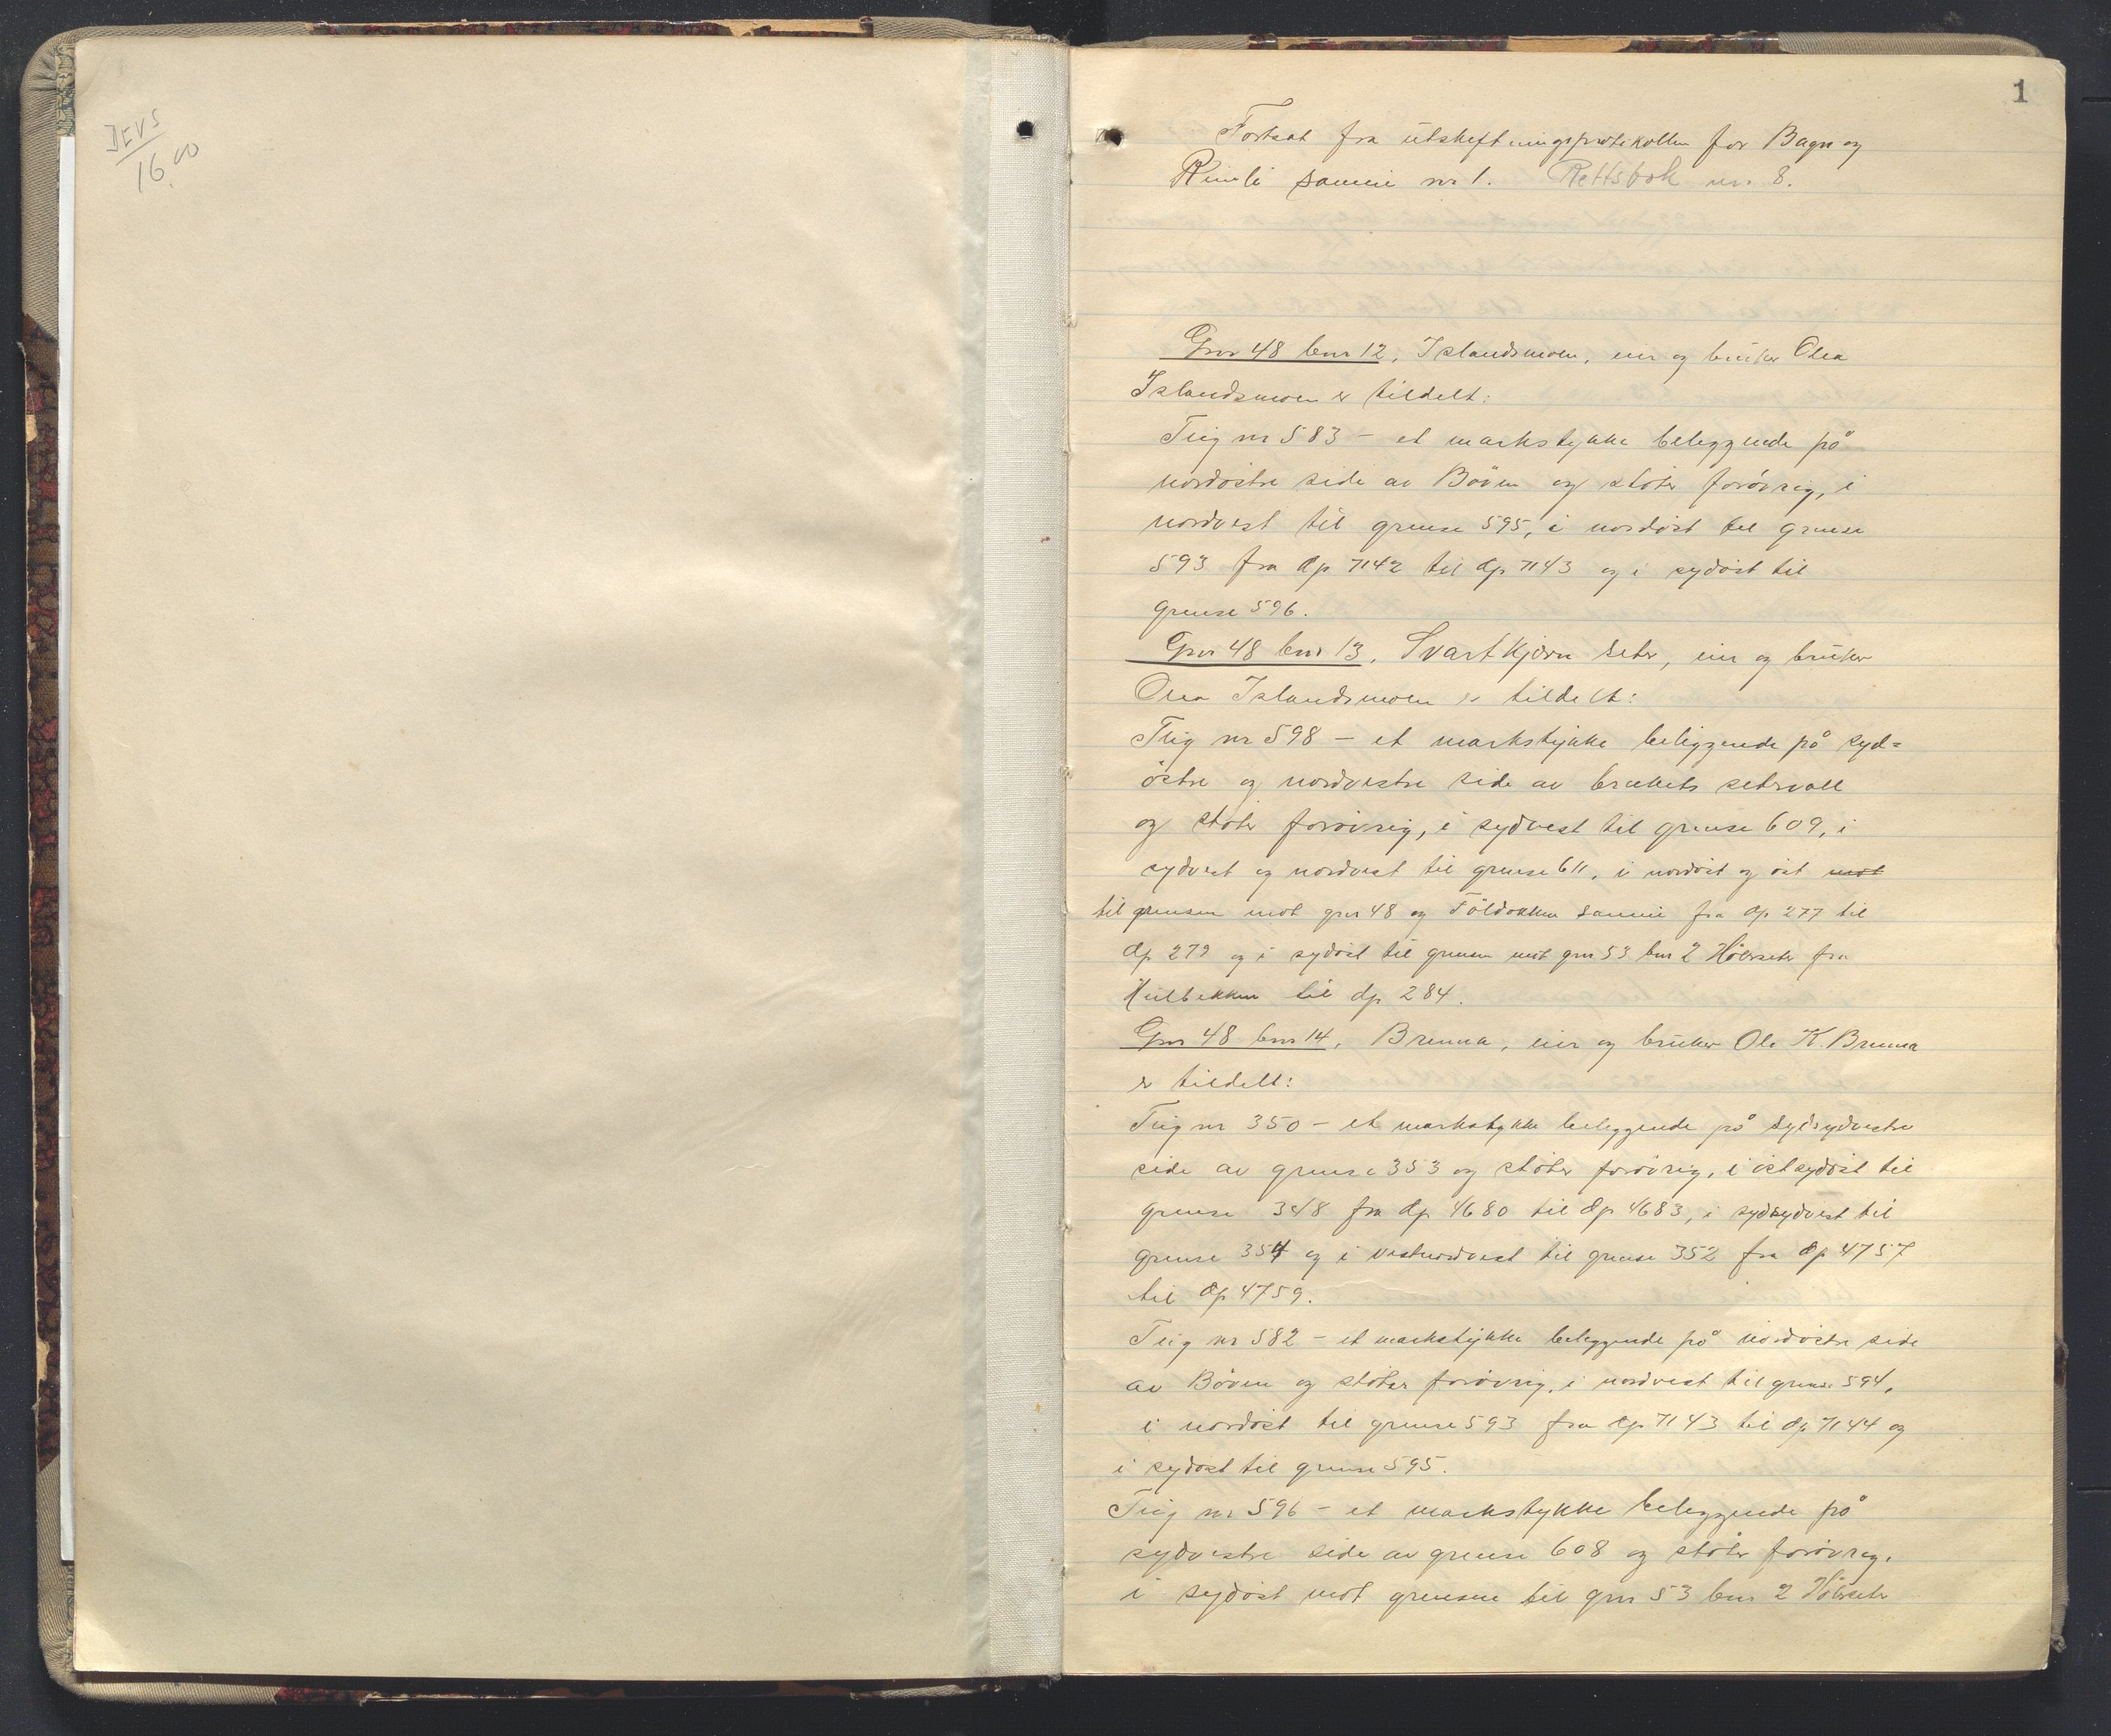 JEVS
16.00
1
Fortsat fra utskiftningsprotokollen for Bagn og
Rimli sameie nr 1. Rettsbok nr. 8.
Gnr 48 bnr 12, Islandsmoen, eier og bruker Olea
Islandsmoen er tildelt:
Teig nr 583 – et markstykke beliggende på
nordöstre side av Böven og stöter forövrig, i
nordvest til grense 595, i nordöst til grense
593 fra dp 7142 til dp 7143 og i sydöst til
grense 596.
Gnr 48 bnr 13, Svartkjern seter, eier og bruker
Olea Islandsmoen er tildelt:
Teig nr 598 – et markstykke beliggende på syd=
östre og nordvestre side av brukets setervoll
og stöter forövrig, i sydvest til grense 609, i
sydvest og nordvest til grense 611, i nordöst og öst mot
til grensen mot gnr 48 og Földokken sameie fra dp 277 til
dp 279 og i sydöst til grensen mot gnr 53 bnr 2 Hölerseter fra
Hulbekken til dp 284.
Gnr 48 bnr 14, Brenna, eier og bruker Ole K. Brenna
er tildelt:
Teig nr 350 – et markstykke beliggende på sydsydvestre
side av grense 353 og stöter forövrig, i östsydöst til
grense 348 fra dp 4680 til dp 4683, i sydsydvest til
grense 354 og i vestnordvest til grense 352 fra dp 4757
til dp 4759.
Teig nr 582 – et markstykke beliggende på nordöstre side
av Böven og stöter forövrig, i nordvest til grense 594,
i nordöst til grense 593 fra dp 7143 til dp 7144 og
i sydöst til grense 595.
Teig nr 596 – et markstykke beliggende på
sydvestre side av grense 608 og stöter forövrig,
i sydöst mot grensene til gnr 53 bnr 2 Hölerseter